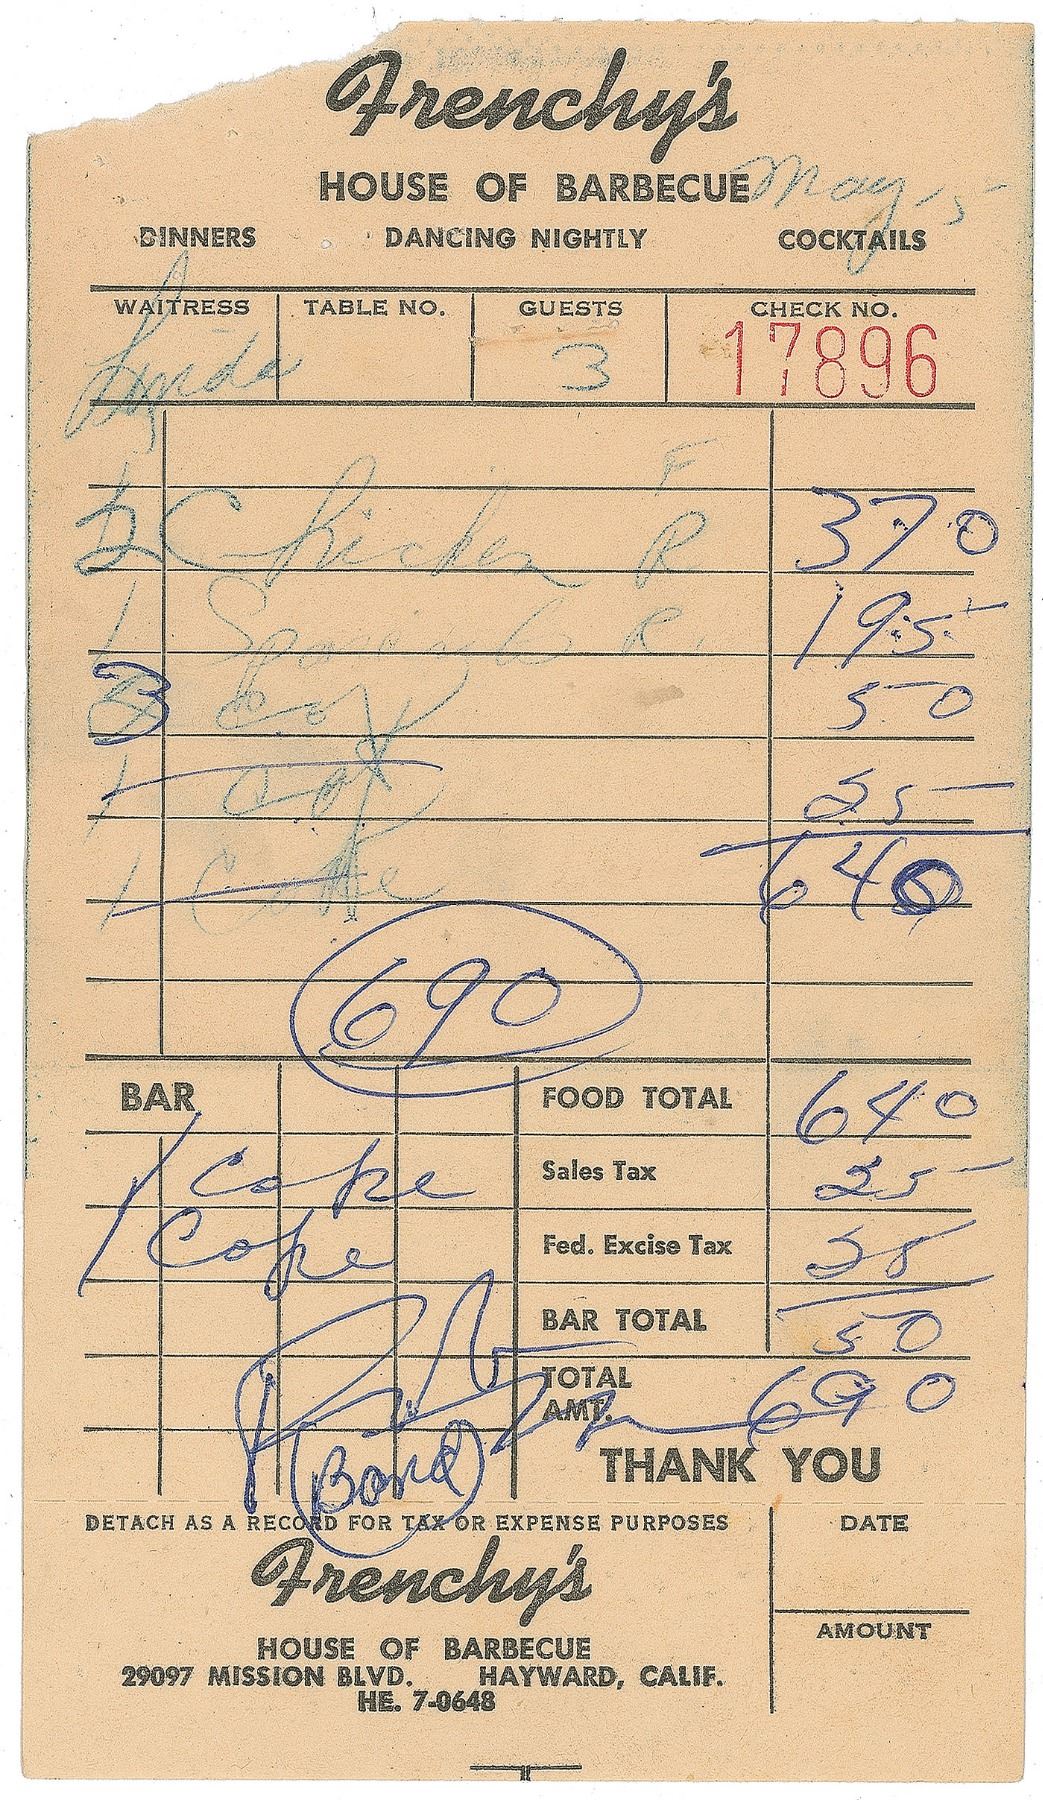 Frenchy's
HOUSE OF BARBECUE May 15
DINNERS DANCING NIGHTLY COCKTAILS
WAITRESS TABLE NO. GUESTS CHECK NO.
Linda 3 17896
F
2 Chicken R 370
1 R. 195
3 50
1 25
640
1 Coke
690
BAR FOOD TOTAL 640
1 Coke Sales Tax 25
1 Coke Fed. Excise Tax 25
BAR TOTAL 50
TOTAL AMT. 690
(Band)
THANK YOU
DETACH AS A RECORD FOR TAX OR EXPENSE PURPOSES DATE
Frenchy's
HOUSE OF BARBECUE AMOUNT
29097 MISSION BLVD. HAYWARD, CALIF.
HE. 7-0648